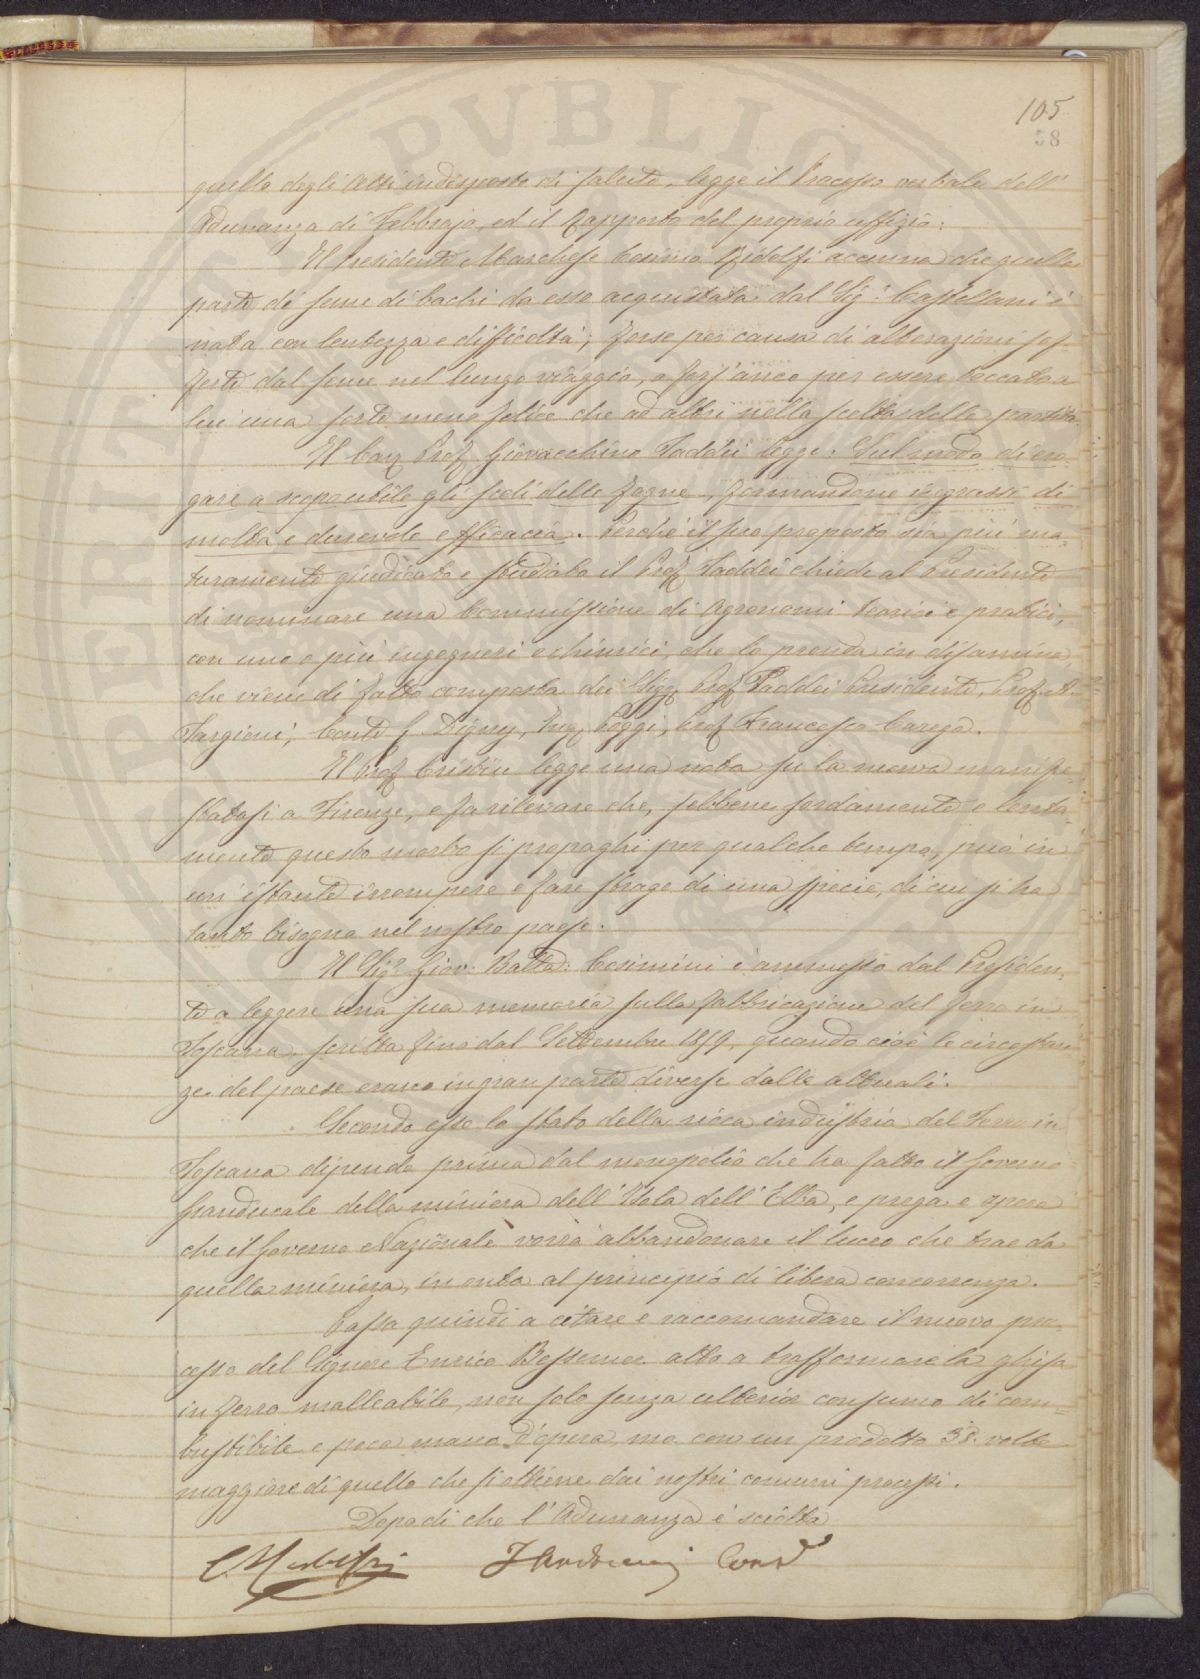 105
58
quello degli Atti indisposto di salute, legge il Processo verbale dell'
Adunanza di Febbrajo, ed il rapporto del proprio uffizio.
Il Presidente Marchese Cosimo Ridolfi accenna che quella
parte di seme di bachi da esso acquistata dal Sig.r Castellani è
nata con lentezza e difficoltà; forse per causa di alterazioni sof-
ferte dal seme nel lungo viaggio, o fors'anco per essere toccata a
lui una sorte meno felice che ad altri nella scelta della partita.
Il Cav. Prof. Giovacchino Taddei legge: Sul modo di ero-
gare a scopo utile gli scoli delle fogne, formandone ingrassi di
molta e durevole efficacia. Perché il suo proposto sia più ma-
turamente giudicato e studiato il Prof. Taddei chiede al Presidente
di nominare una Commissione di Agronomi teorici e pratici,
con uno o più ingegneri e chimici, che lo prenda in disamina,
che viene di fatto composta dei Sigg. Prof. Taddei Presidente, Prof. A.
Targioni, Conte C. Digny, Ing. Poggi, Prof. Francesco Carega.
Il Prof. Cristin legge una nota su la morva manife-
statasi a Firenze, e fa rilevare che, sebbene sordamente e lenta-
mente questo morbo si propaghi per qualche tempo, può in
un'istante irrompere e fare strage di una specie, di cui si ha
tanto bisogno nel nostro paese.
Il Sig.r Giov: Batta: Cosimini è ammesso dal Presiden-
te a leggere una sua memoria sulla fabbricazione del ferro in
Toscana, scritta fino dal Settembre 1859, quando cioè le circostan-
ze del paese erano in gran parte diverse dalle attuali.
Secondo esso lo stato della ricca industria del Ferro in
Toscana dipende prima dal monopolio che ha fatto il Governo
Granducale della miniera dell'Isola dell'Elba, e prega e spera
che il Governo Nazionale vorrà abbandonare il lucro che trae da
quella miniera, in onta al principio di libera concorrenza.
Passa quindi a citare e raccomandare il nuovo pro-
cesso del Signore Enrico Bessemer atto a trasformare la ghisa
in ferro malleabile, non solo senza ulterior consumo di com-
bustibile e poca mano d'opera, ma con un prodotto 38 volte
maggiore di quello che si ottiene dai nostri comuni processi.
Dopo di che l'Adunanza è sciolta
C. Ridolfi